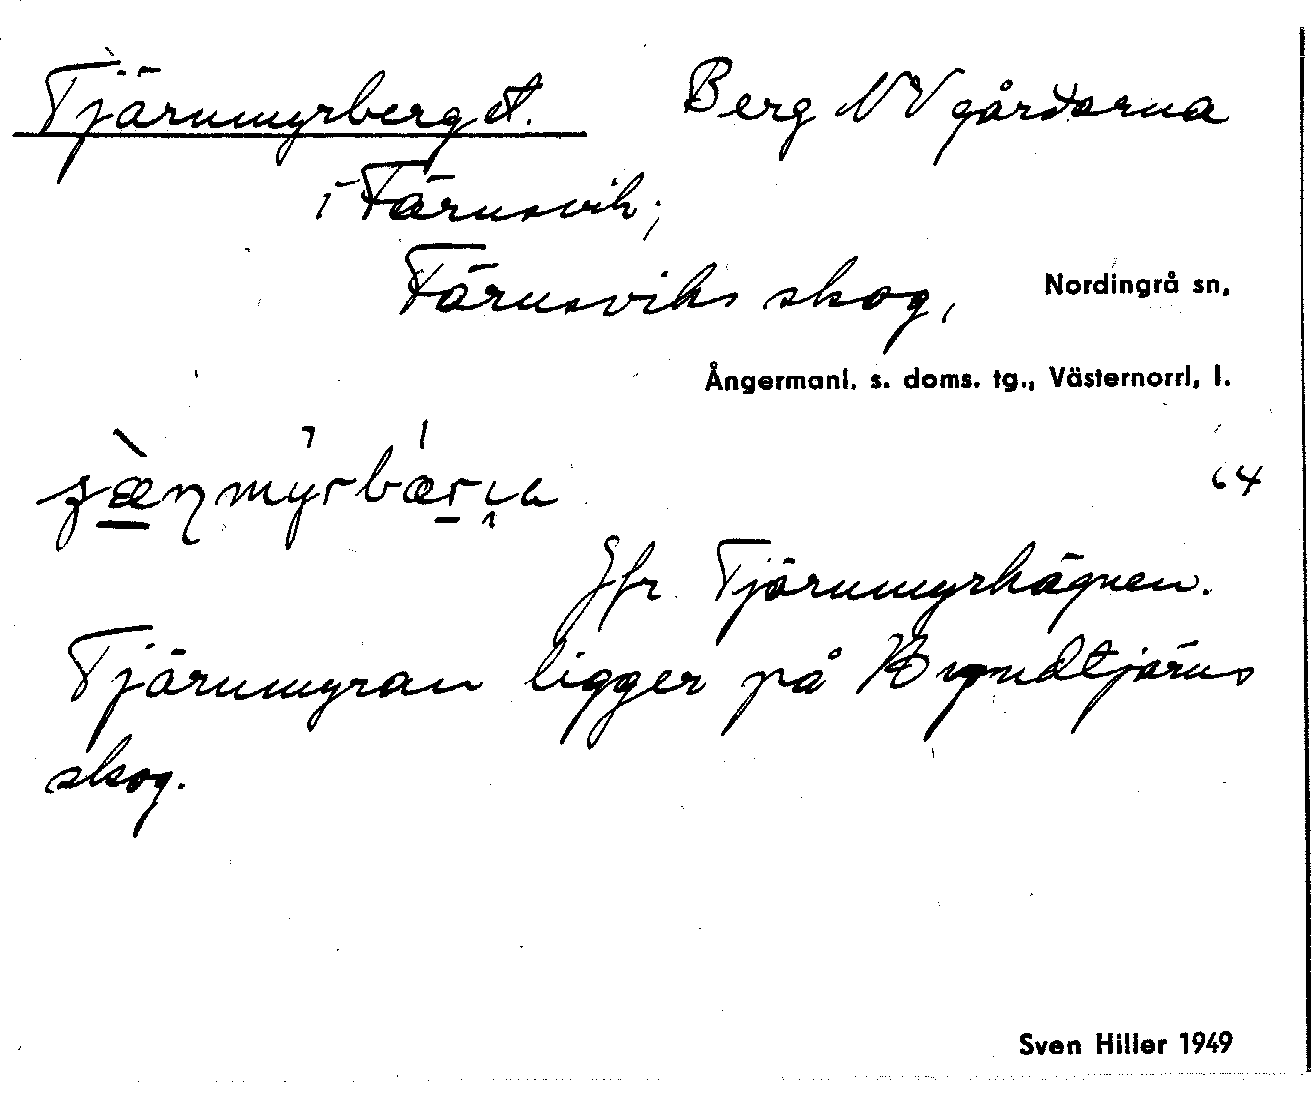 Tjärnmyrberget. Berg NV gårdarna
i Färnsvik;
Färnsviks skog, Nordingrå sn,
Ångermanl. s. doms. tg., Västernorrl. l.
64
Jfr Tjärnmyrhägnen.
Tjärnmyran ligger på Bryndtjärns
skog.
Sven Hiller 1949